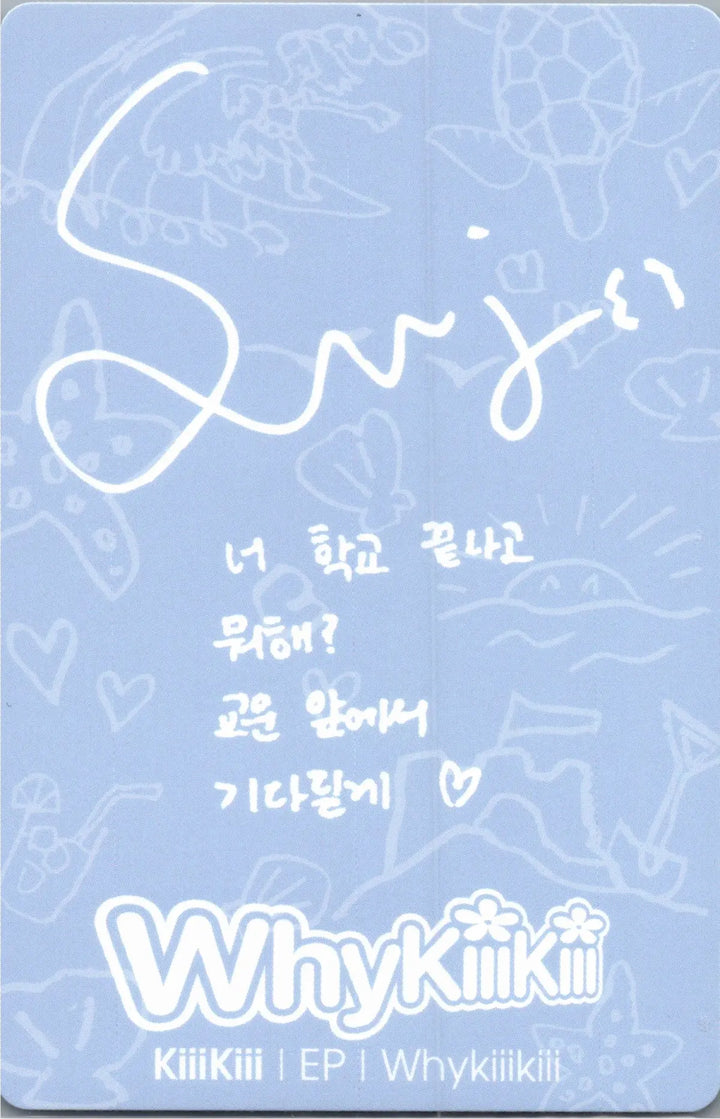 Sui j
너 학교 끝나고
뭐해?
교문 앞에서
기다릴게 ♡
WhyKiiiKiii
KiiiKiii | EP | Whykiiikiii